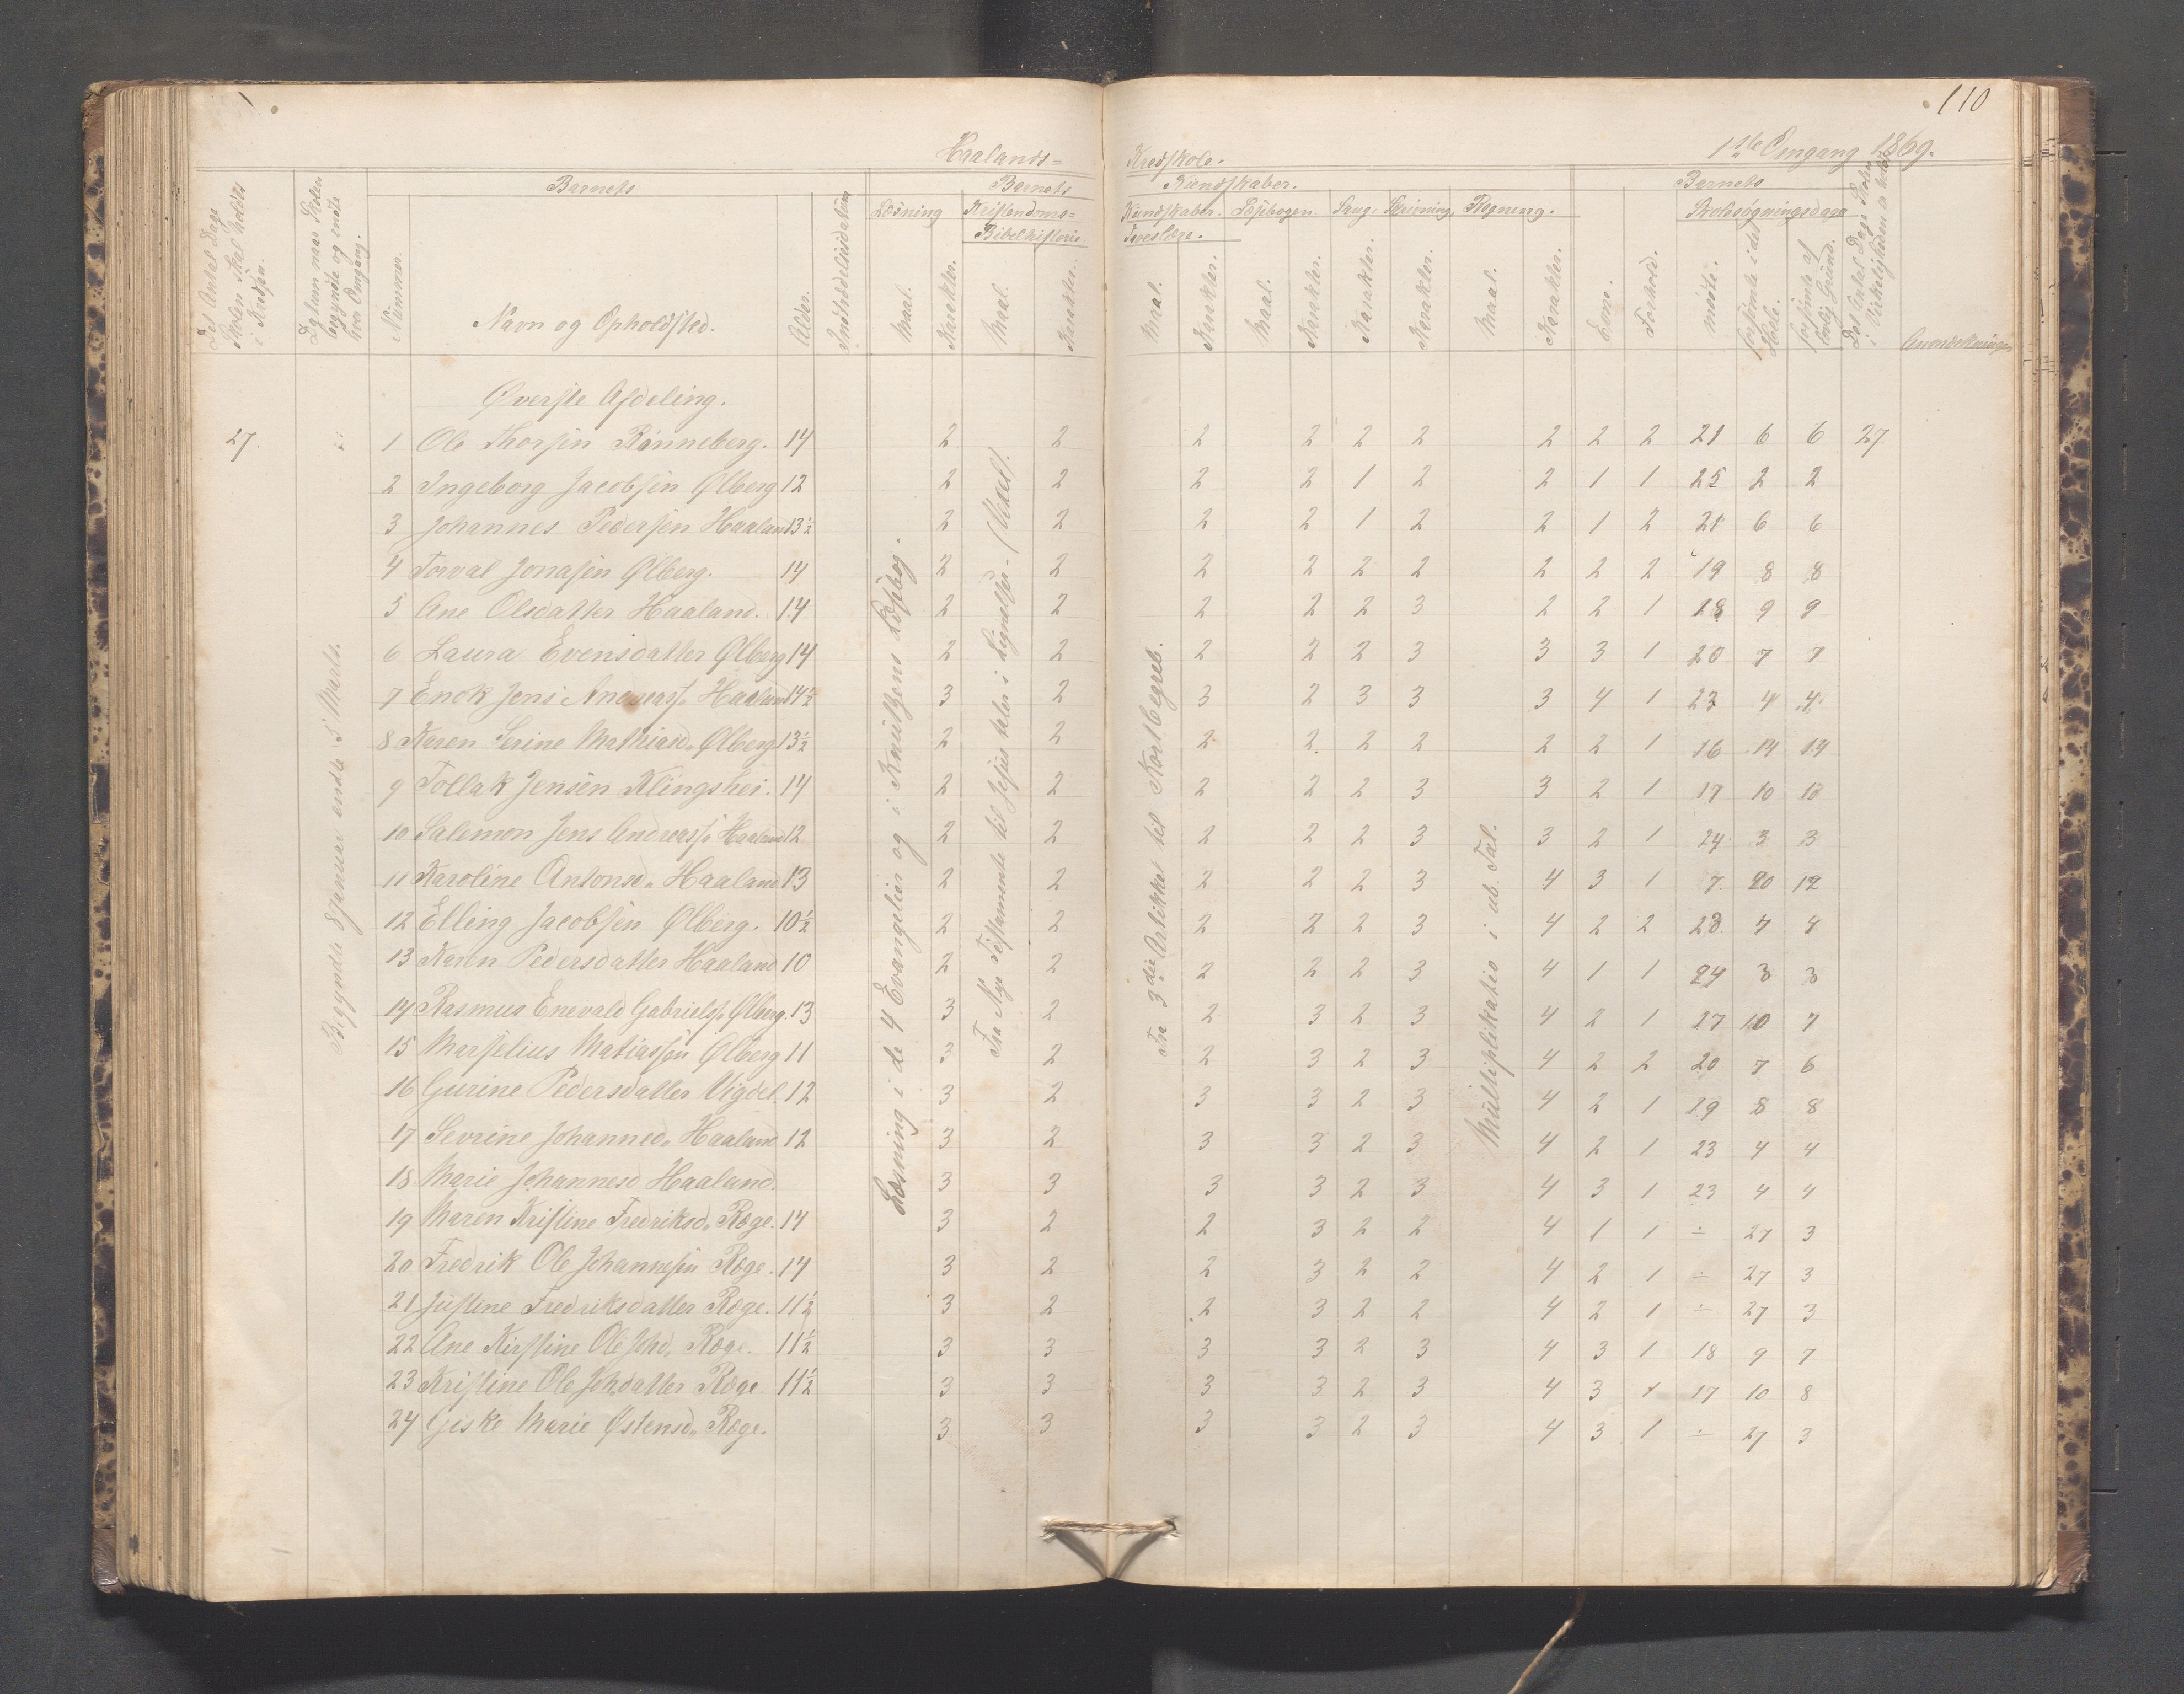 110
Haalands= Kredsskole. 1ste Omgang 1869.
Det Antal Dage Skolen skal holdes i Kredsen.
Datum naar Skolen begyndte og endte hver Omgang.
Barnets
Nummer.
Navn og Opholdsted.
Alder.
Indtrædelsesdatum
Barnets Kundskaber.
Læsning
Maal.
Karakter.
Kristendoms= Kundskaber.
Bibelhistorie
Maal.
Karakter.
Troeslære.
Maal.
Karakter.
Læsebogen.
Maal.
Karakter.
Sang.
Karakter.
Skrivning.
Karakter.
Regning.
Maal.
Karakter.
Barnets
Evne.
Forhold.
Skolesøgningsdage
mødte.
forsømte i det Hele.
forsømte af lovlig Grund.
Det Antal Dage Skolen i Virkeligheden er holdt
Anmærkninger
Øverste Afdeling.
27.
Begyndte 8 Januar endte 5 Marts.
Læsning i de 4 Evangelier og i Knutzens Læsebog.
Fra Nye Testamente til Jesus taler i Lignelser - (Udel).
Fra 3die Artikkel til Kortbegreb.
Multiplikatio i ub. Tal.
1 Ole Thorsen Rønneberg. 14 2 2 2 2 2 2 2 2 2 21 6 6 27
2 Ingeborg Jacobsen Ølberg 12 2 2 2 2 1 2 2 1 1 25 2 2
3 Johannes Pedersen Haaland 13½ 2 2 2 2 1 2 2 1 2 21 6 6
4 Torval Jonasen Ølberg. 14 2 2 2 2 2 2 2 2 2 19 8 8
5 Ane Olsdatter Haaland. 14 2 2 2 2 2 3 2 2 1 18 9 9
6 Laura Evensdatter Ølberg 14 2 2 2 2 2 3 3 3 1 20 7 7
7 Enok Jens Andreass. Haaland 14½ 3 2 3 2 3 3 3 4 1 23 4 4
8 Karen Serine Mathiasd. Ølberg 13½ 2 2 2 2 2 2 2 2 1 16 14 14
9 Tollak Jensen Klingshei. 14 2 2 2 2 2 3 3 2 1 17 10 10
10 Salemon Jens Andreass. Haaland 12 2 2 2 2 2 3 3 2 1 24 3 3
11 Karoline Antonsd. Haaland 13 2 2 2 2 2 3 4 3 1 7 20 12
12 Elling Jacobsen Ølberg. 10½ 2 2 2 2 2 3 4 2 2 23 4 4
13 Karen Pedersdatter Haaland 10 2 2 2 2 2 3 4 1 1 24 3 3
14 Rasmus Enevald Gabriels. Ølberg. 13 3 2 2 3 2 3 4 2 1 17 10 7
15 Marselius Matiassen Ølberg 11 3 2 2 3 2 3 4 2 2 20 7 6
16 Gurine Pedersdatter Vigdel. 12 3 2 3 3 2 3 4 2 1 19 8 8
17 Sevrine Johannesd. Haaland 12 3 2 3 3 2 3 4 2 1 23 4 4
18 Marie Johannesd Haaland. 3 3 3 3 2 3 4 3 1 23 4 4
19 Maren Kristine Fredriksd. Ræge. 14 3 2 2 3 2 2 4 1 1 ÷ 27 3
20 Fredrik Ole Johannesen Ræge. 14 3 2 2 3 2 2 4 2 1 ÷ 27 3
21 Justine Fredriksdatter Ræge. 11½ 3 2 2 3 2 2 4 2 1 ÷ 27 3
22 Ane Kirstine Ole Johd. Ræge. 11½ 3 3 3 3 2 3 4 3 1 18 9 7
23 Kristine Ole Johdatter Ræge 11½ 3 3 3 3 2 3 4 3 1 17 10 8
24 Giske Marie Østensd. Ræge. 3 3 3 3 2 3 4 3 1 ÷ 27 3